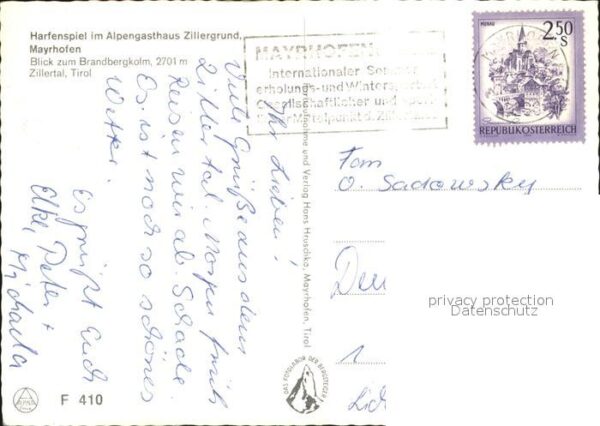 Harfenspiel im Alpengasthaus Zillergrund,
Mayrhofen
Blick zum Brandbergkolm, 2701 m
Zillertal, Tirol
MAYRHOFEN
Internationaler Sommer
erholungs- und Wintersport
Gesellschaftlicher und
Mittelpunkt d.
MURAU
2.50
S
REPUBLIK ÖSTERREICH
Ihr Lieben!
Viele Grüße aus dem
Zillertal. Morgen früh
Reisen wir ab. Schade.
Es ist noch so schönes
Wetter.
Es grüßt Euch
Elke, Peter +
Michaela
und Verlag Hans Hruschka, Mayrhofen, Tirol
Fam
O. Sadowsky
1
privacy protection
Datenschutz
DAS FOTOLABOR DER BERGSTEIGER
F 410